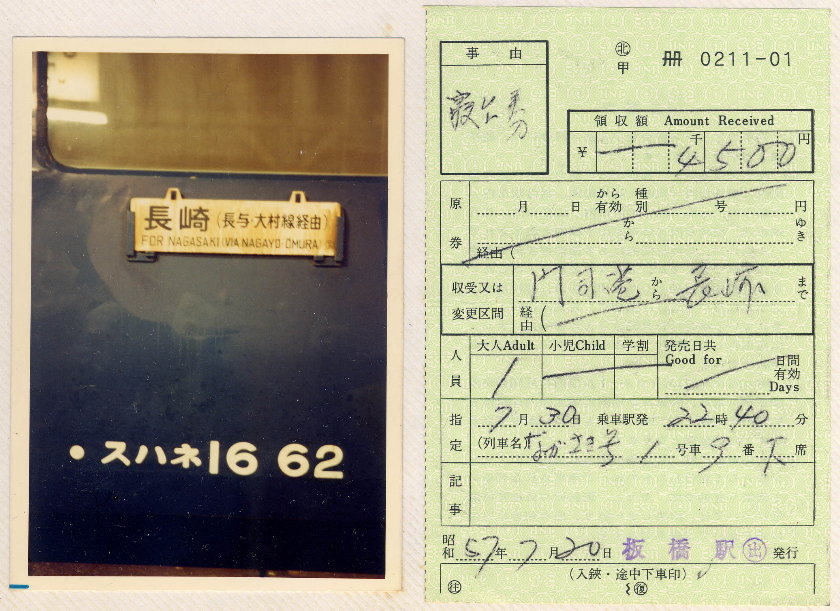 長崎(長与・大村線経由)
FOR NAGASAKI (VIA NAGAYO・ŌMURA)
・スハネ16 62
事由
㊗北
甲
冊 0211-01
寝台券
領収額 Amount Received
¥ 千 円
4500
原券
月 日 から有効 種別 号 円
から ゆき
経由(
収受又は変更区間
門司港から長崎まで
経由(
人員
大人Adult 小児Child 学割 発売日共
Good for 日間有効
Days
1
指定
7月30日 乗車駅発 22時40分
(列車名) ながさき号 1号車 9番 下席
記事
昭和57年7月20日 板橋駅 出 発行
(入鋏・途中下車印)